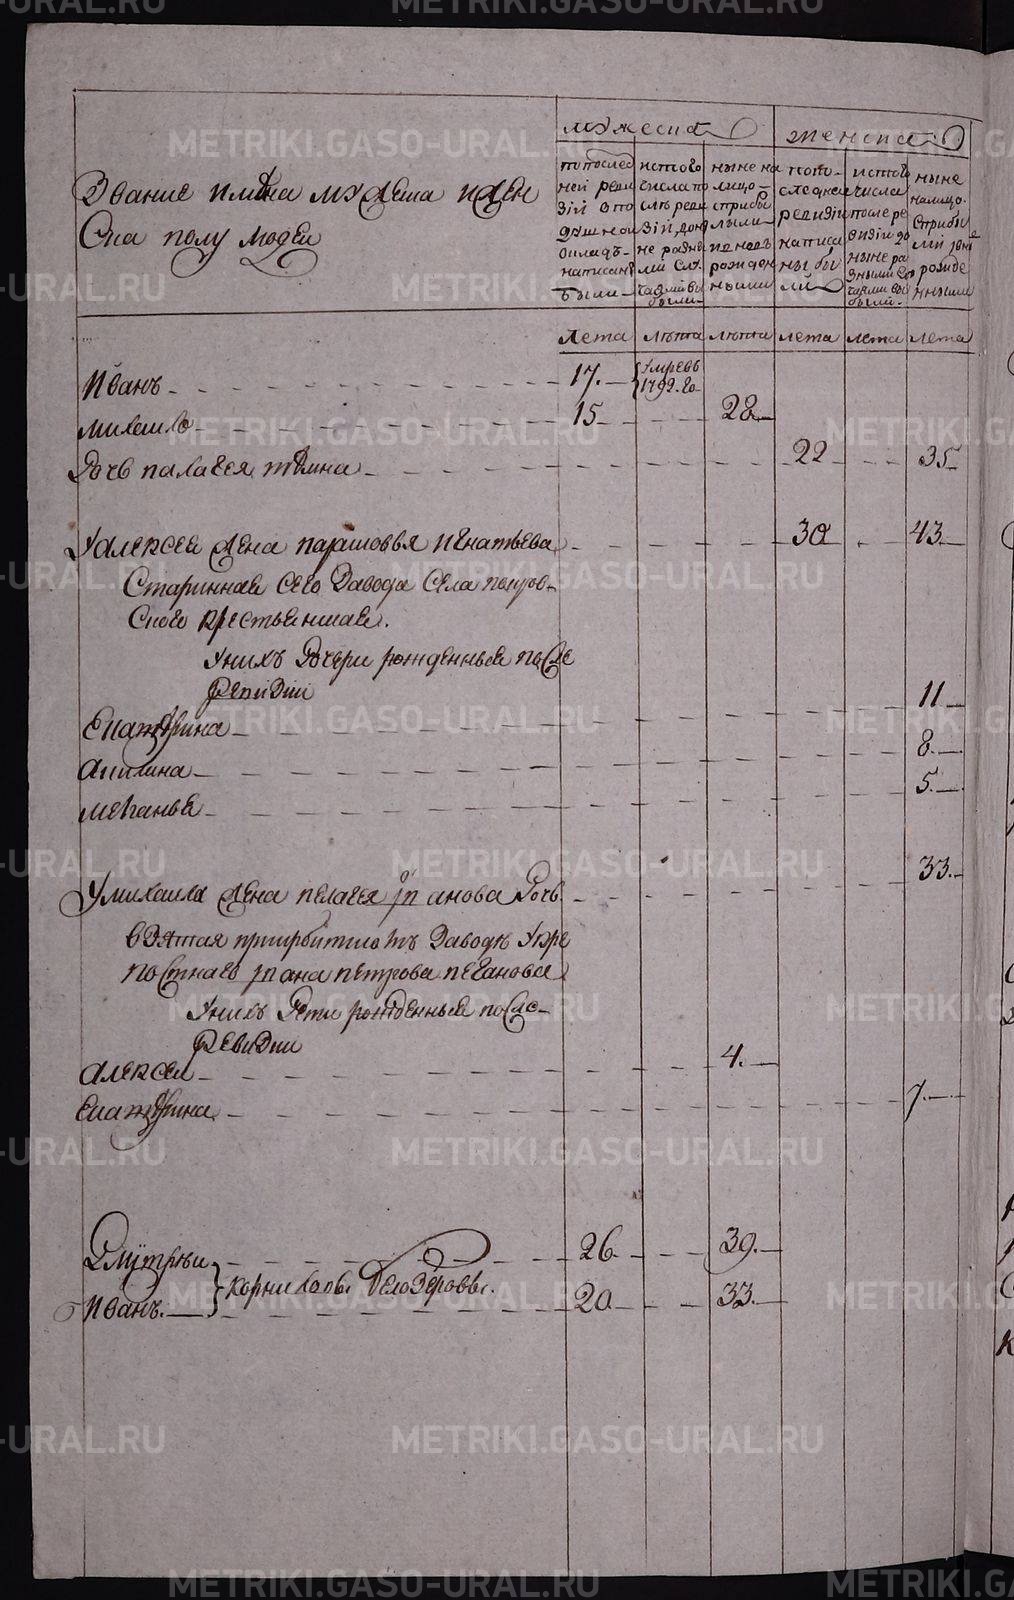 мужеска
женска
Звание имена мужеска и жен
ска полу людей
по послед
ней реви
зии в по
душной
окладъ
написан
были
ис того
числа по
сле реви
зии до
не разны
ми слу
чаями вы
были
ныне на
лицо
с прибы
лыми
и новъ
рожден
ными
по по
следней
ревизии
написа
ны бы
ли
ис того
числа
после ре
визии до
ныне ра
зными слу
чаями вы
были
ныне
налицо
с прибы
ли
рожде
нными
лета
лѣта
лѣта
лета
лета
лета
Иванъ 17. умре въ
1792. го
михаило 15 28
Дочь палагея 22 35
У алексея жена парасковья игнатьева 30 43
старинная сего завода села покров
ского крестьянская.
у нихъ дочери рожденныя после
ревизии
Екатерина 11
акилина 8
меланья 5
У михаила жена пелагея иванова дочь 33
взятая при ирбитском заводе у кре
постнаго ивана петрова пеганова
у нихъ дети рожденныя после
ревизии
алексеи 4
екатерина 7
Дмитреи 26 39
корниловы белозеровы.
Иванъ 20 33
METRIKI.GASO-URAL.RU